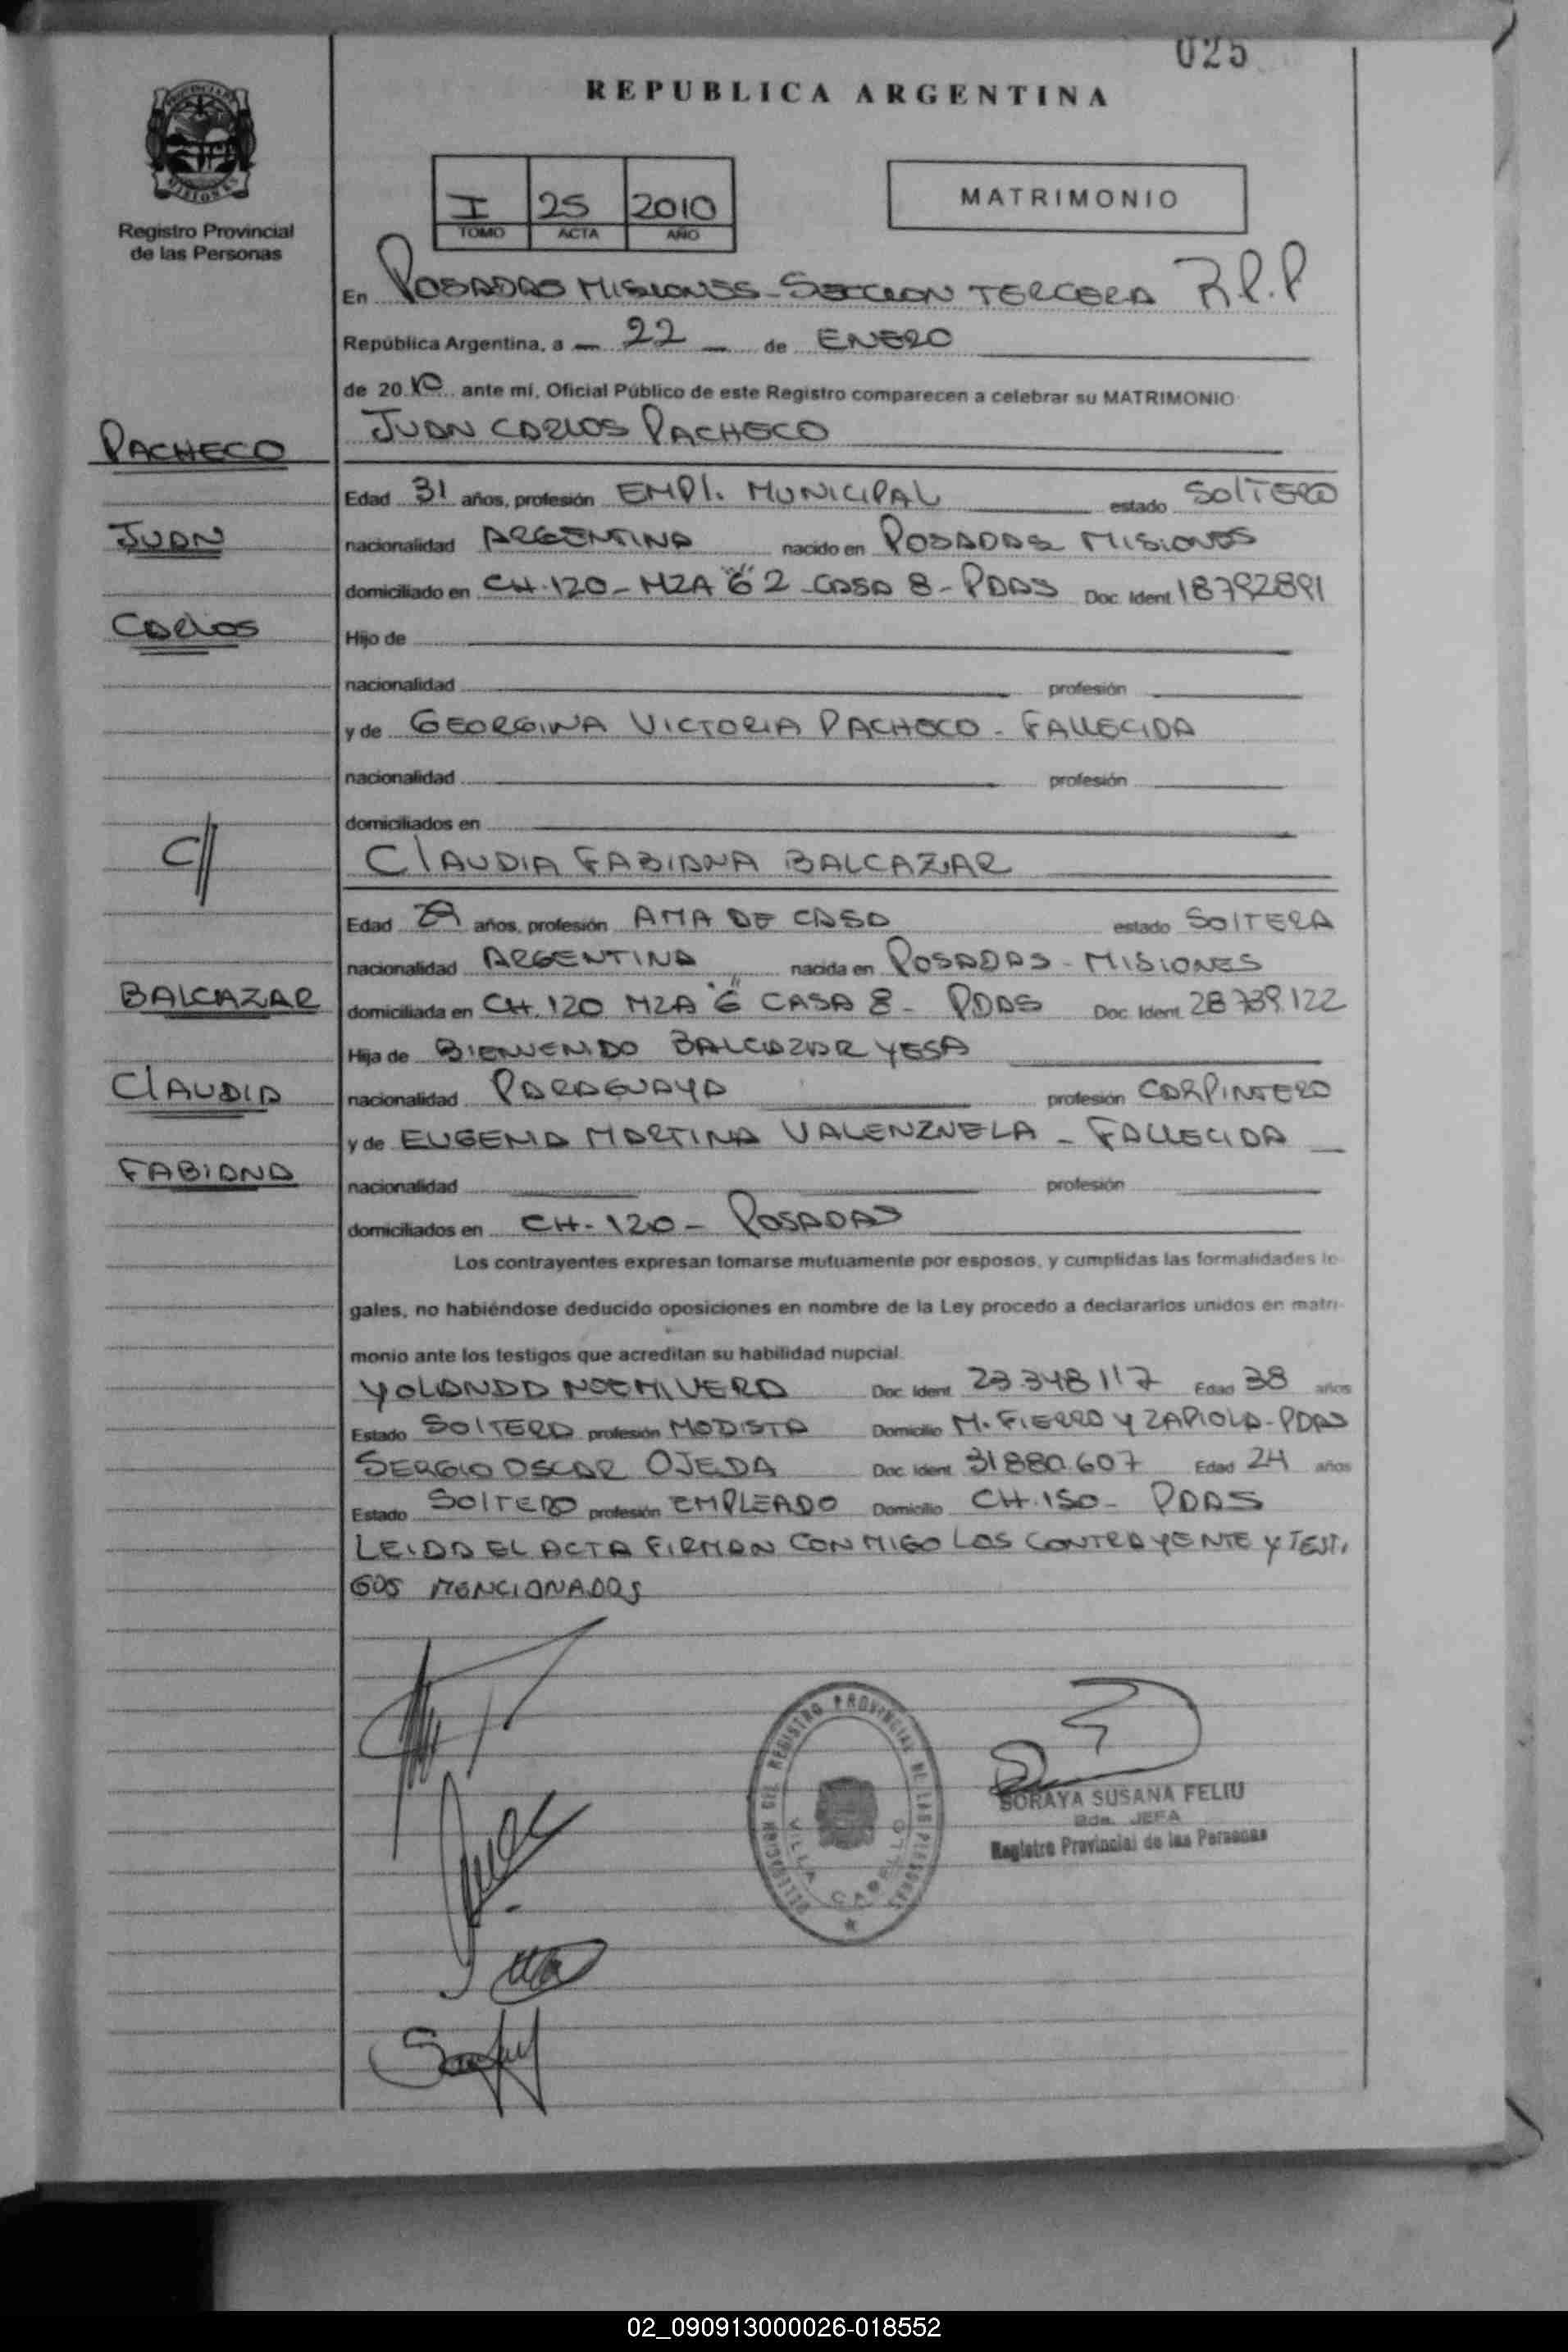 025
REPUBLICA ARGENTINA
Registro Provincial
de las Personas
I 25 2010
TOMO ACTA AÑO
MATRIMONIO
En POSADAS MISIONES - SECCION TERCERA R.P.P
República Argentina, a - 22 - de ENERO
de 2010 ante mí, Oficial Público de este Registro comparecen a celebrar su MATRIMONIO
JUAN CARLOS PACHECO
PACHECO
Edad 31 años, profesión EMPL. MUNICIPAL estado SOLTERO
JUAN
nacionalidad ARGENTINA nacido en POSADAS MISIONES
domiciliado en CH. 120 - MZA 62 - CASA 8 - PDAS Doc. Ident 18792891
CARLOS
Hijo de
nacionalidad profesión
y de GEORGINA VICTORIA PACHECO - FALLECIDA
nacionalidad profesión
domiciliados en
C//
CLAUDIA FABIANA BALCAZAR
Edad años, profesión AMA DE CASA estado SOLTERA
nacionalidad ARGENTINA nacida en POSADAS - MISIONES
BALCAZAR
domiciliada en CH. 120 MZA "6" CASA 8 - PDAS Doc. Ident. 28739.122
Hija de BIENVENIDO BALCAZAR YESA
CLAUDIA
nacionalidad PARAGUAYA profesión CARPINTERO
y de EUGENIA MARTINA VALENZNELA - FALLECIDA
FABIANA
nacionalidad profesión
domiciliados en CH - 120 - POSADAS
Los contrayentes expresan tomarse mutuamente por esposos, y cumplidas las formalidades le-
gales, no habiéndose deducido oposiciones en nombre de la Ley procedo a declararlos unidos en matri-
monio ante los testigos que acreditan su habilidad nupcial.
YOLANDA NOEMI VERA Doc. Ident. 23.348117 Edad 38 años
Estado SOLTERA profesión MODISTA Domicilio M. FIERRO Y ZAPIOLA - PDAS
SERGIO OSCAR OJEDA Doc. Ident. 31880.607 Edad 24 años
Estado SOLTERO profesión EMPLEADO Domicilio CH. 150 - PDAS
LEIDA EL ACTA FIRMAN CONMIGO LOS CONTRAYENTE Y TESTI
GOS MENCIONADOS
DELEGACION DEL REGISTRO PROVINCIAL DE LAS PERSONAS
VILLA CABELLO
SORAYA SUSANA FELIU
2da. JEFA
Registro Provincial de las Personas
02_090913000026-018552